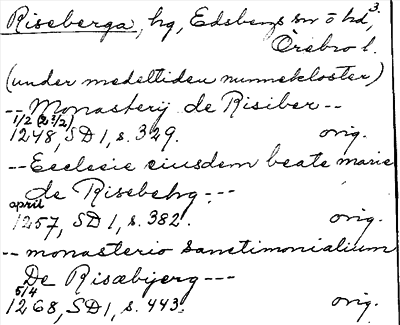 Riseberga, hg, Edsbergs sn o hd,³
Örebro l.
(under medeltiden nunnekloster)
-- Monasterij de Risiber --
1/2 (2⁷/2)
1248, SD 1, s. 329. orig.
-- Ecclesie eiusdem beate marie
de Risebehg ---
april
1257, SD 1, s. 382. orig.
-- monasterio sanctimonialium
De Risæbjerg ---
5/4
1268, SD 1, s. 443. orig.